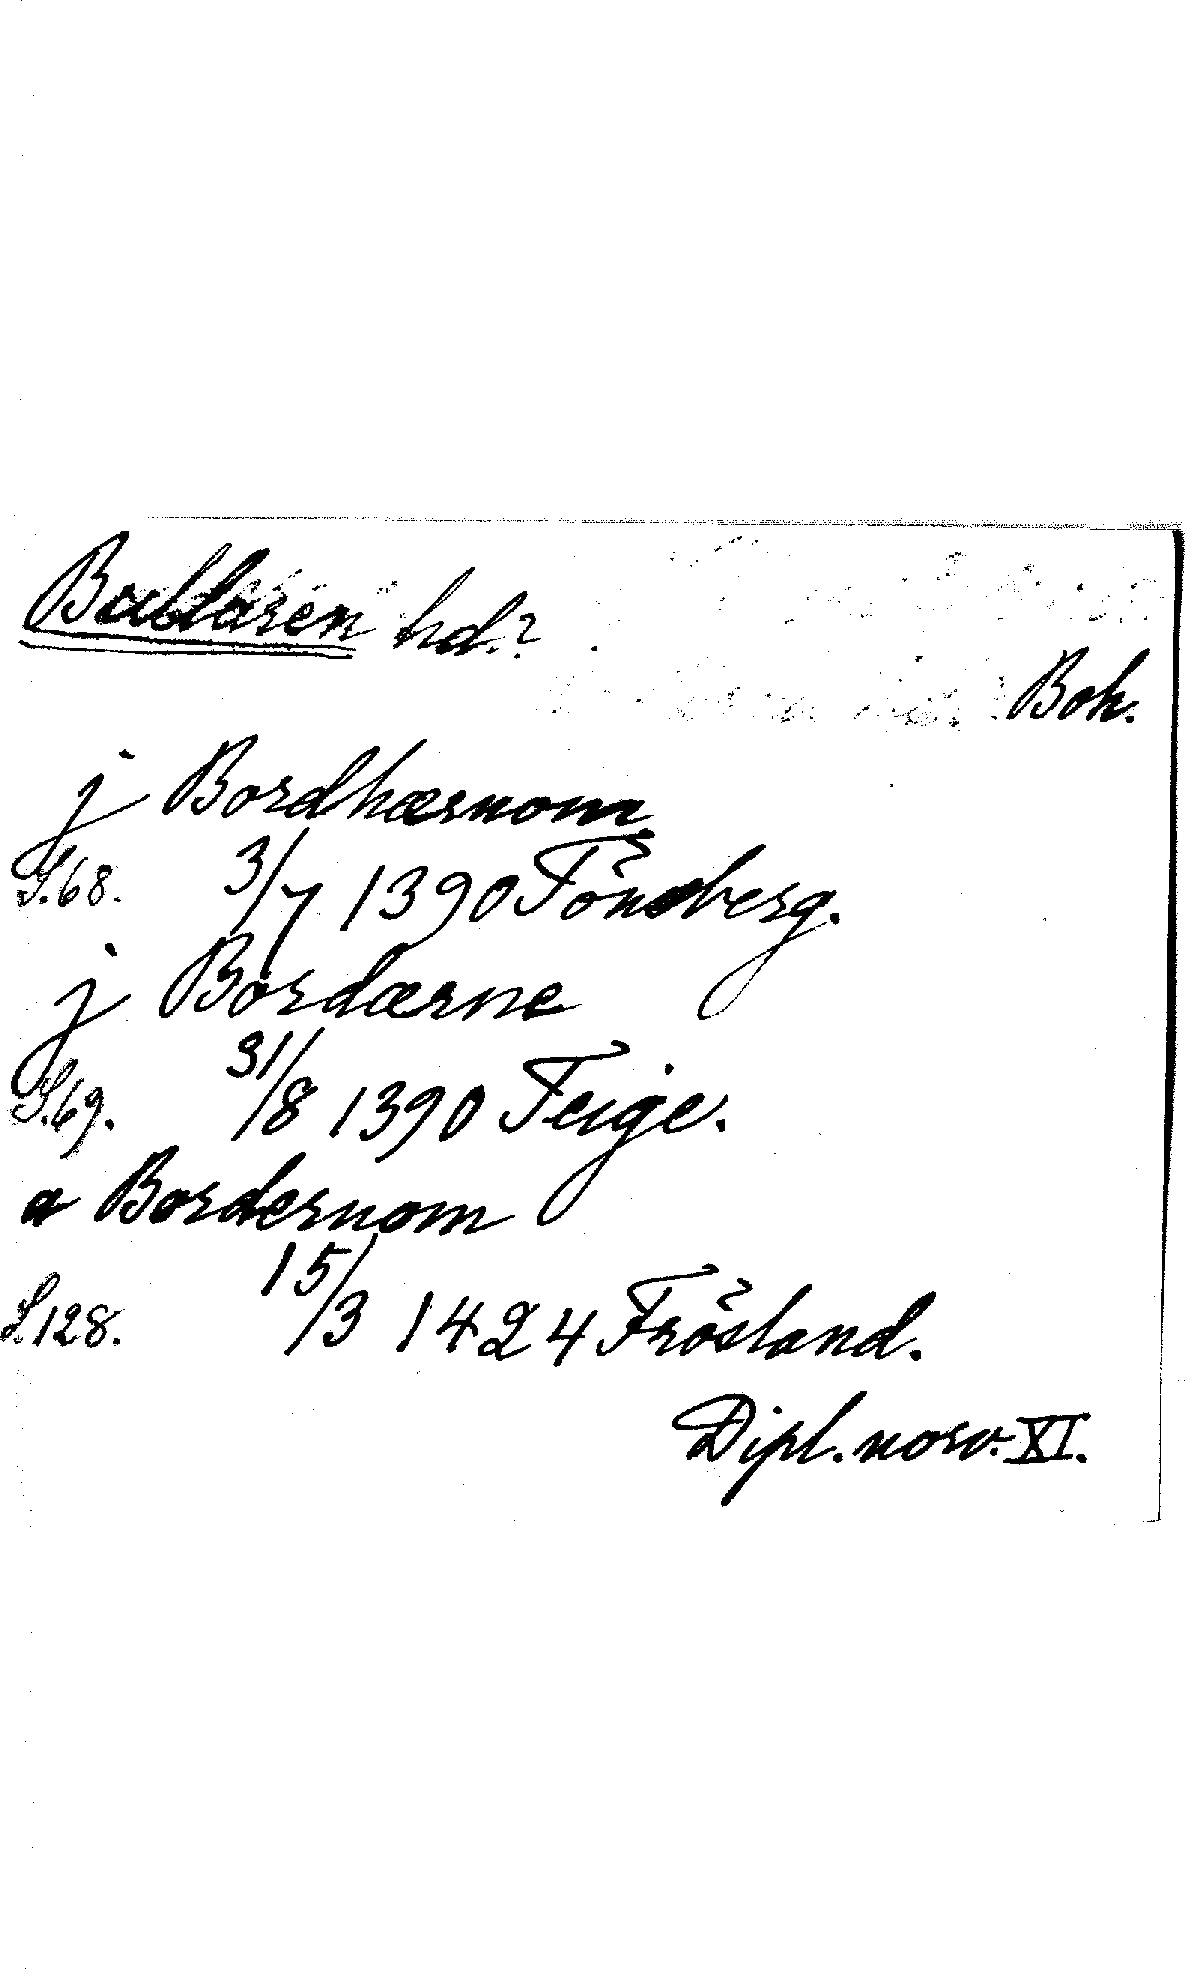 Bullaren hd.?
Boh.
j Bordhærnom
S.68. 3/7 1390 Tönsberg.
j Bordærne
S.69. 31/8 1390 Teige.
a Bordernom
S.128. 15/3 1424 Frösland.
Dipl. norv. XI.